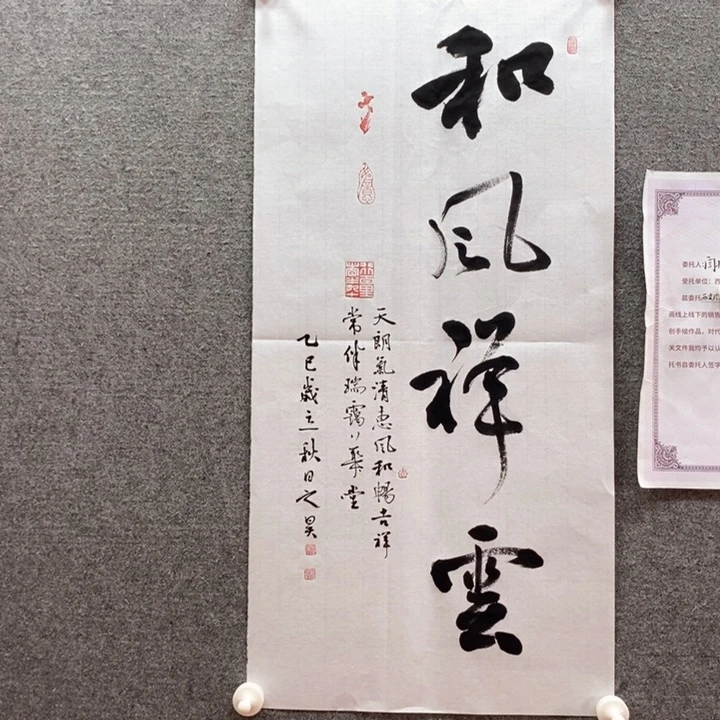 和风祥雲
天朗氣清惠风和畅吉祥
常伴瑞霭
乙巳歲立秋日之昊
委托人:
受托单位:西
兹委托
画线上线下的销售
创手绘作品，时代
关文件我均予以认
托书自委托人签字